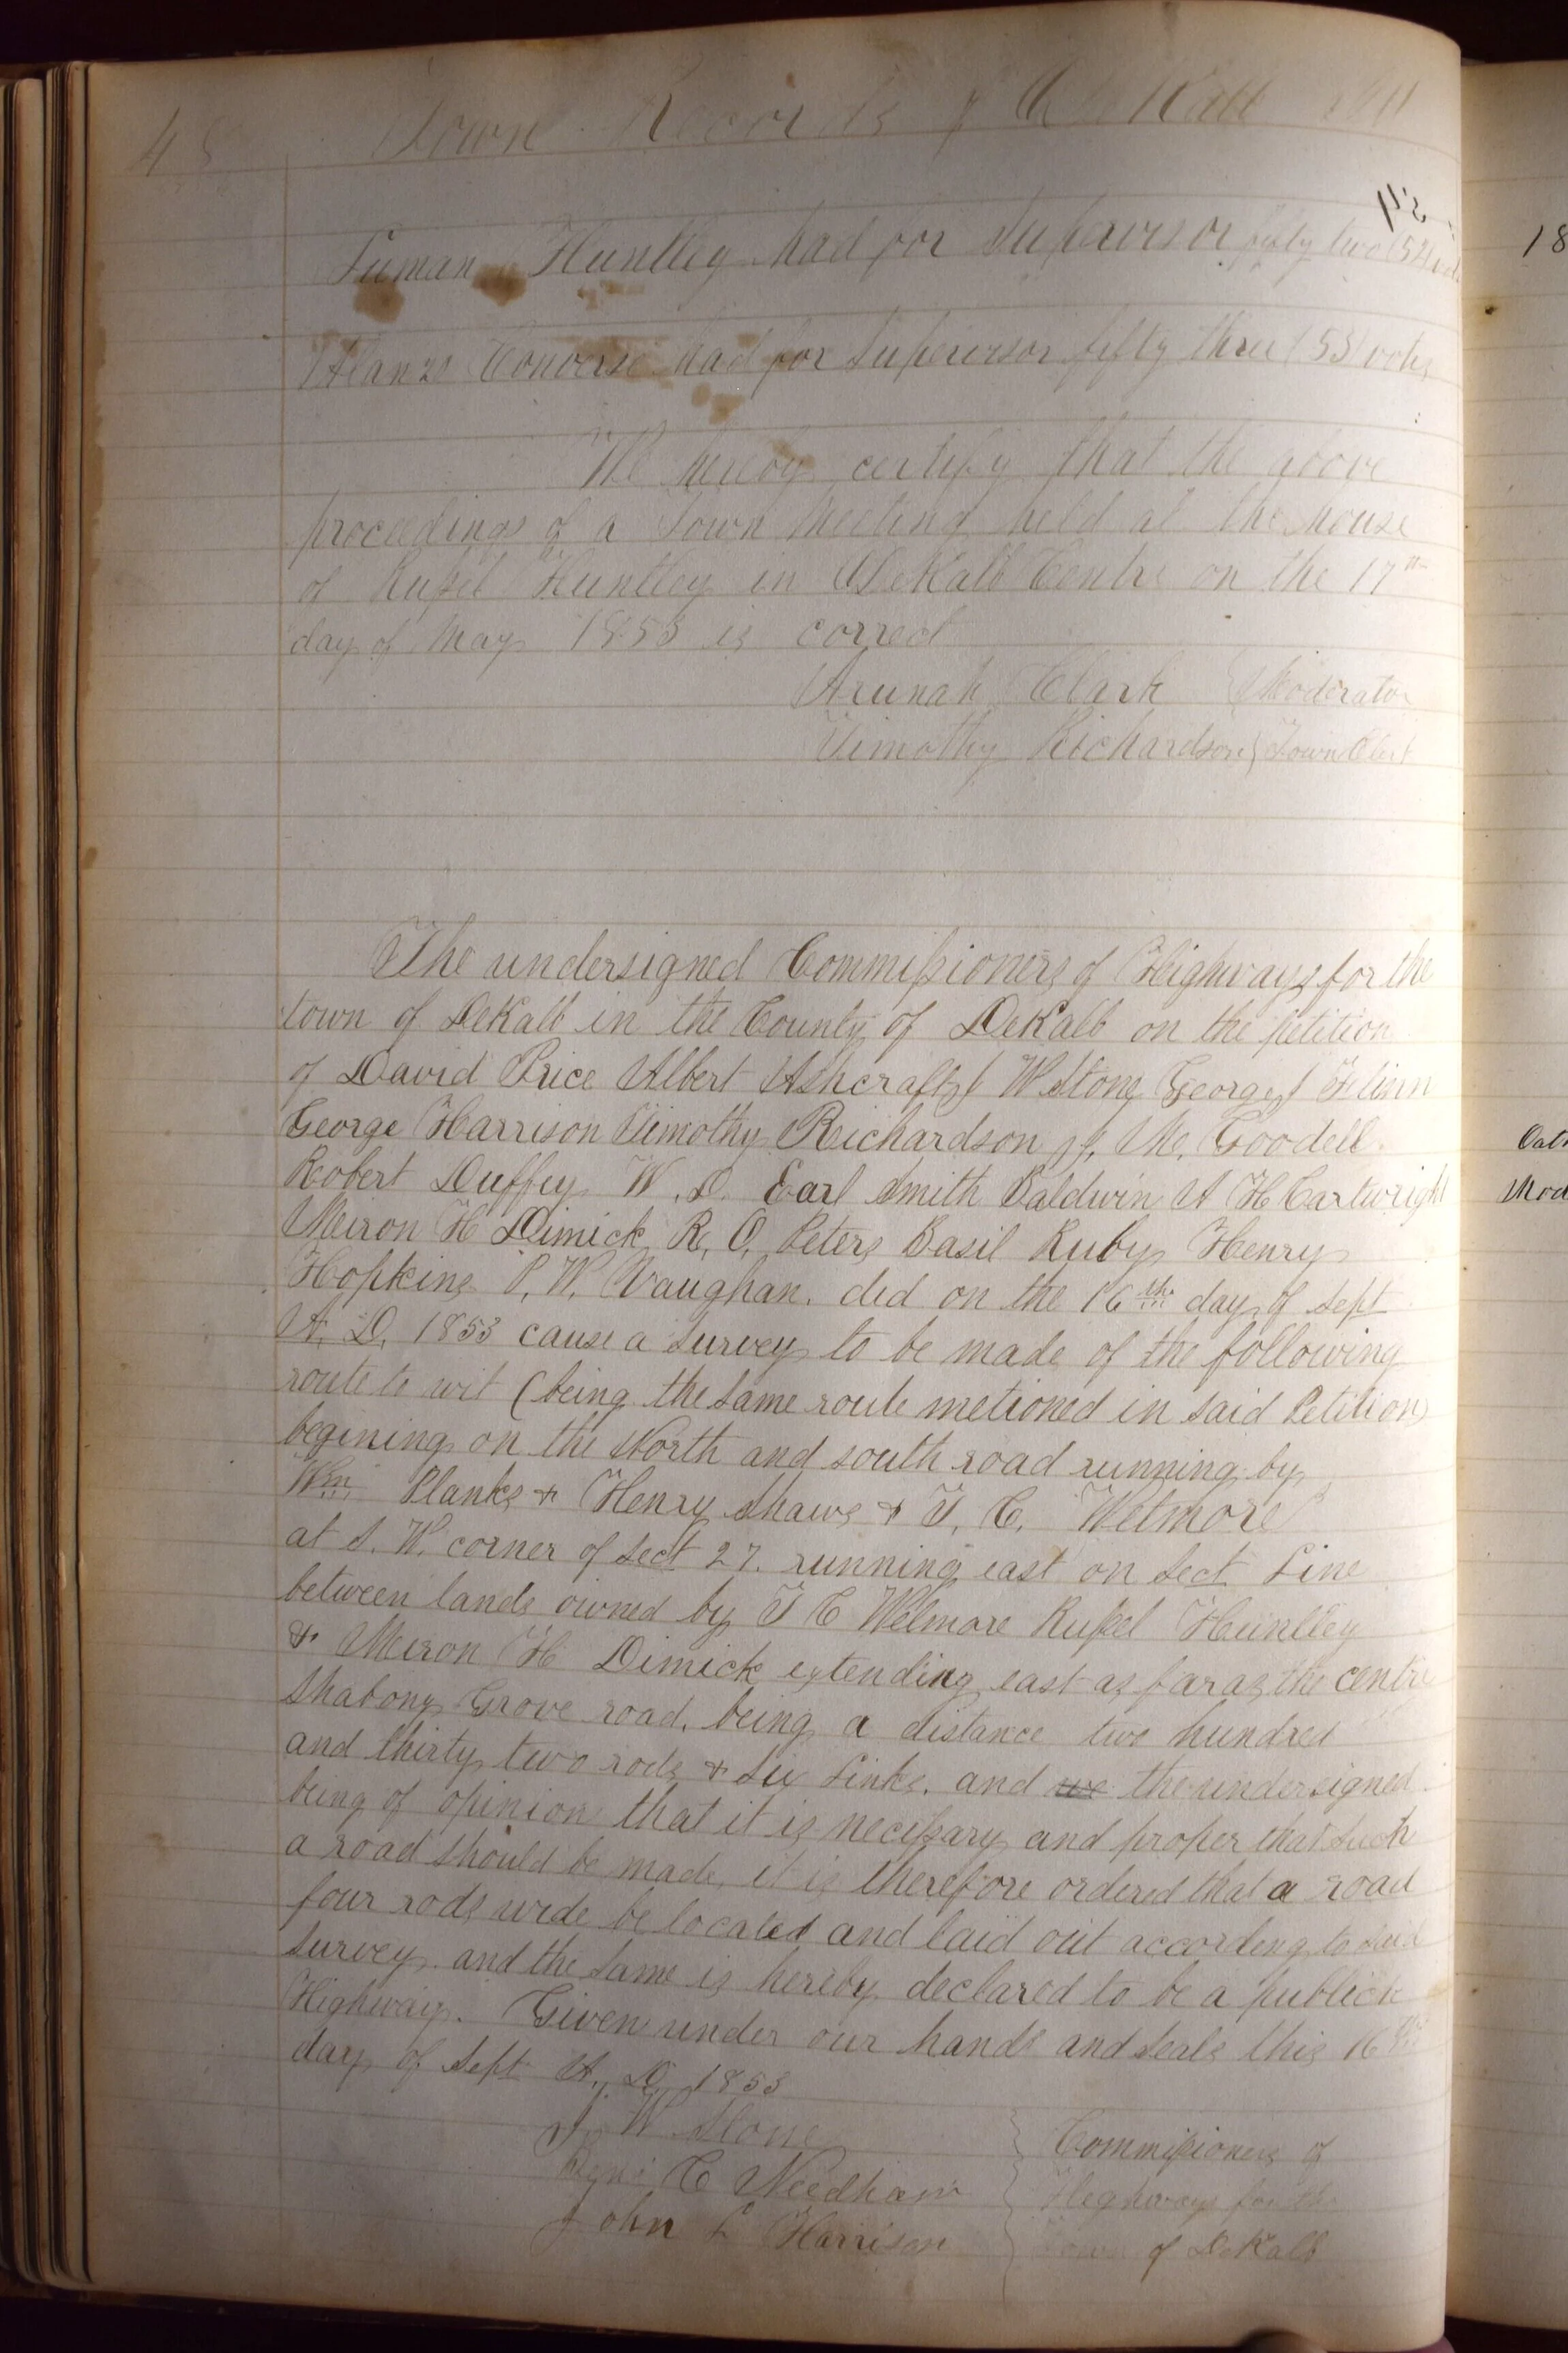 48 Town Records of DeKalb Ill
Luman Huntley had for Supervisor fifty two (52) vots
Alanzo Converse had for Supervisor fifty three (53) vots
We hereby certify that the above
proceedings of a Town Meeting held at the house
of Russel Huntley in DeKalb Centre on the 17th
day of May 1853 is correct
Arunah Clark } Moderator
Timothy Richardson } Town Clerk
The undersigned Commissioners of Highways for the
town of DeKalb in the County of DeKalb on the petition
of David Price Albert Ashcraft J W Stone George J Flinn
George Harrison Timothy Richardson J. M. Goodell
Robert Duffey W. D. Earl Smith Baldwin A H Cartwright
Miron H Dimick R. O. Peters Basil Ruby Henry
Hopkins P. W. Vaughan. did on the 16th day of Sept
A. D. 1853 cause a survey to be made of the following
route to wit (being the same route metioned in said Petition)
begining on the North and south road running by
Wm Planks & Henry Shaws & T. C. Wetmore
at S. W. corner of Sect 27. running east on Sect Line
between lands owned by T C Wetmore Russel Huntley
& Miron H Dimick extending east as far as the centre
Shabony Grove road, being a distance two hundred
and thirty two rods & Six Links. and we the undersigned
being of opinion that it is necessary and proper that such
a road should be made, it is therefore ordered that a road
four rods wide be located and laid out according to said
survey. and the same is hereby declared to be a publick
Highway. Given under our hands and seals this 16th
day of Sept A. D. 1853
J W Stone } Commissioners of
C Needham } Highways for the
John L Harrison } Town of DeKalb
18